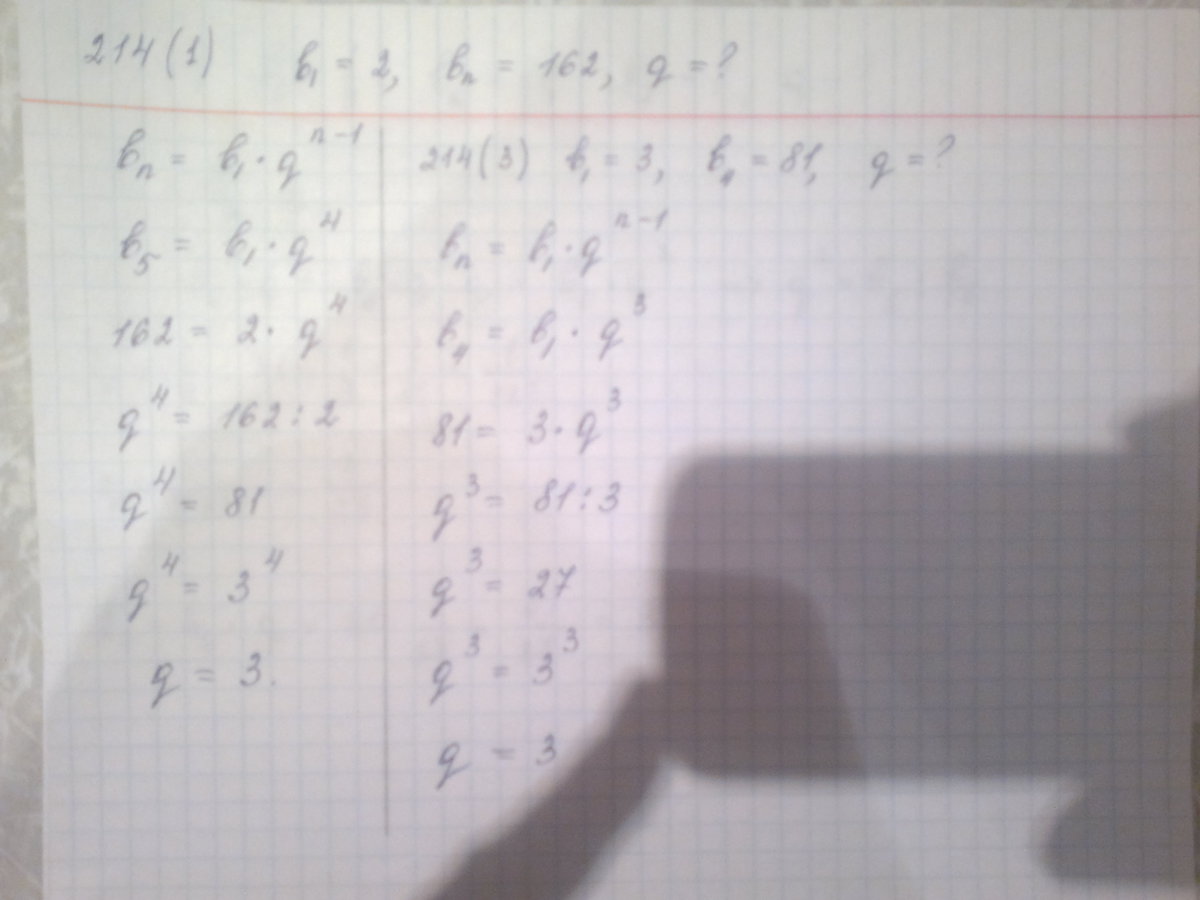 214(1) b₁ = 2, bₙ = 162, q = ?
bₙ = b₁ · qⁿ⁻¹
b₅ = b₁ · q⁴
162 = 2 · q⁴
q⁴ = 162 : 2
q⁴ = 81
q⁴ = 3⁴
q = 3.
214(3) b₁ = 3, b₄ = 81, q = ?
bₙ = b₁ · qⁿ⁻¹
b₄ = b₁ · q³
81 = 3 · q³
q³ = 81 : 3
q³ = 27
q³ = 3³
q = 3